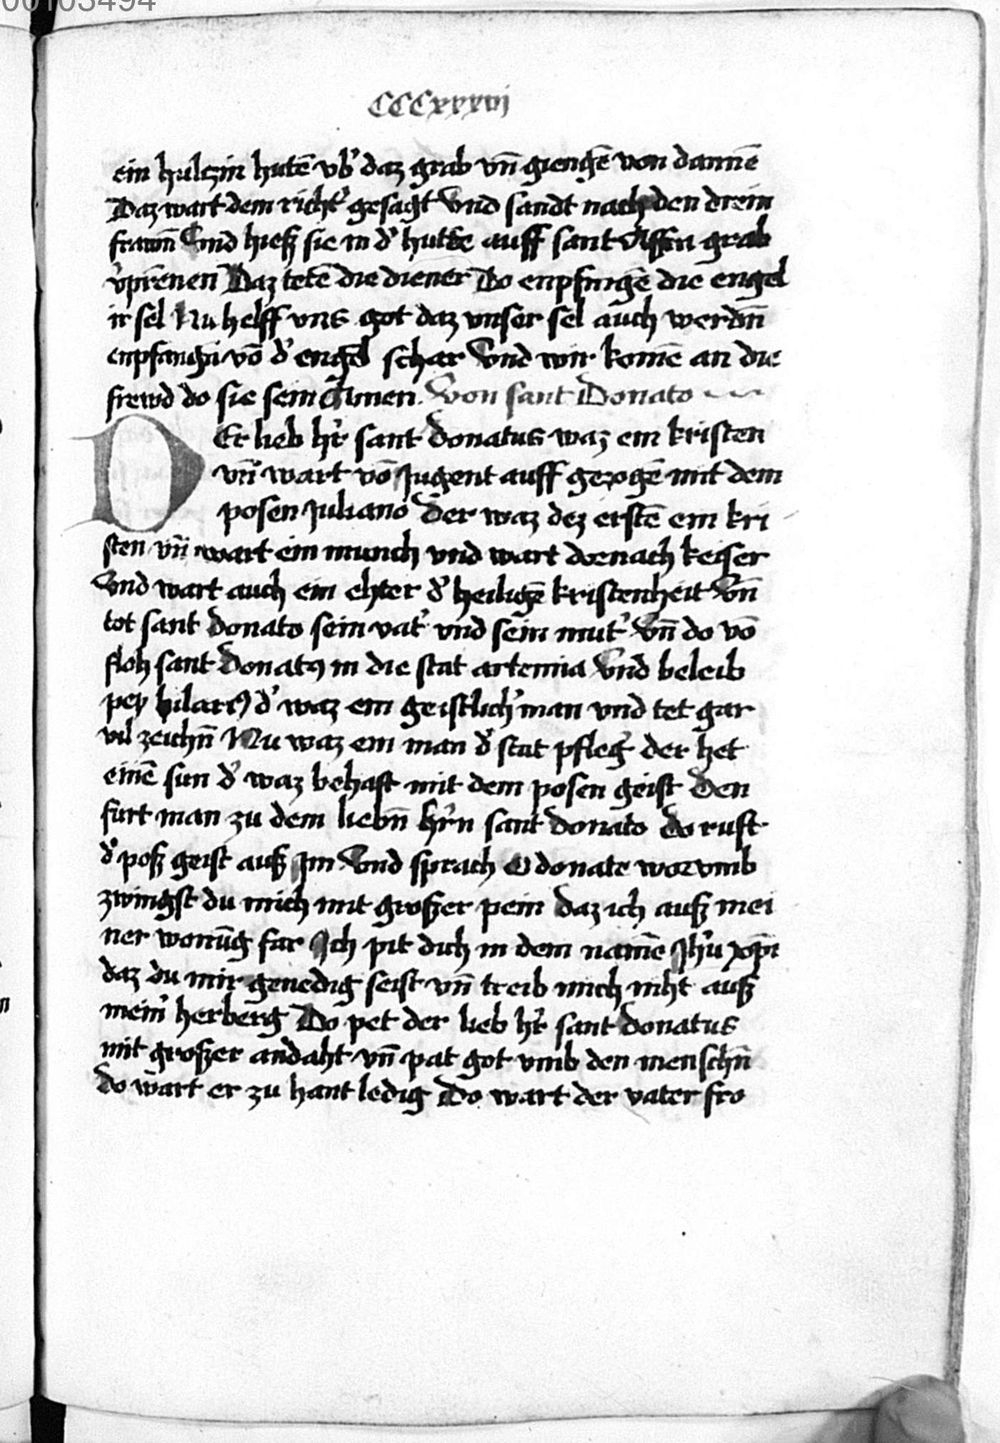 00103494
CCCxxxvij
ein hulczin hutē vb̾ daz grab vn̄ giengē von dannē
Daz wart dem richt̾ gesagt Vnd sandt nach den drein
frawn̄ Vnd hieß sie in d̾ hutte auff sant Affen grab
v̾prēnen Daz tetē die diener Do enpfingē die engel
ir sel Nu helff vns got daz vnser sel auch werdn̄
enpfangn̄ vō d̾ engel schar Vnd wir komē an die
frewd do sie sein Amen. Von sant Donato
DEr lieb hr̄ sant donatus waz ein kristen
vn̄ wart vō Jugent auff gezogē mit dem
posen Juliano Der waz dez erstē ein kri
sten vn̄ wart ein munch vnd wart dornach keiser
Vnd wart auch ein ehter d̾ heiligē kristenheit Vn̄
tot sant donato sein vat̾ vnd sein mut̾ Vn̄ do vō
floh sant Donatꝰ in die stat artemia Vnd beleib
pey hilarꝰ d̾ waz ein geistlich̾ man vnd tet gar
vil zeichn̄ Nu waz ein man d̾ stat pfleg̾ der het
einē sun d̾ waz behaft mit dem posen geist Den
furt man zu dem liebn̄ hr̄n sant donato do ruft
d̾ poß geist auß Jm Vnd sprach O donate worvmb
zwingst du mich mit großer pein daz ich auß mei
ner wonūg far Jch pit dich in dem namē Jhū xp̄i
daz du mir genedig seist vn̄ treib mich niht auß
mein̾ herberg Do pet der lieb hr̄ sant donatus
mit großer andaht vn̄ pat got vmb den menschn̄
do wart er zu hant ledig Do wart der vater fro